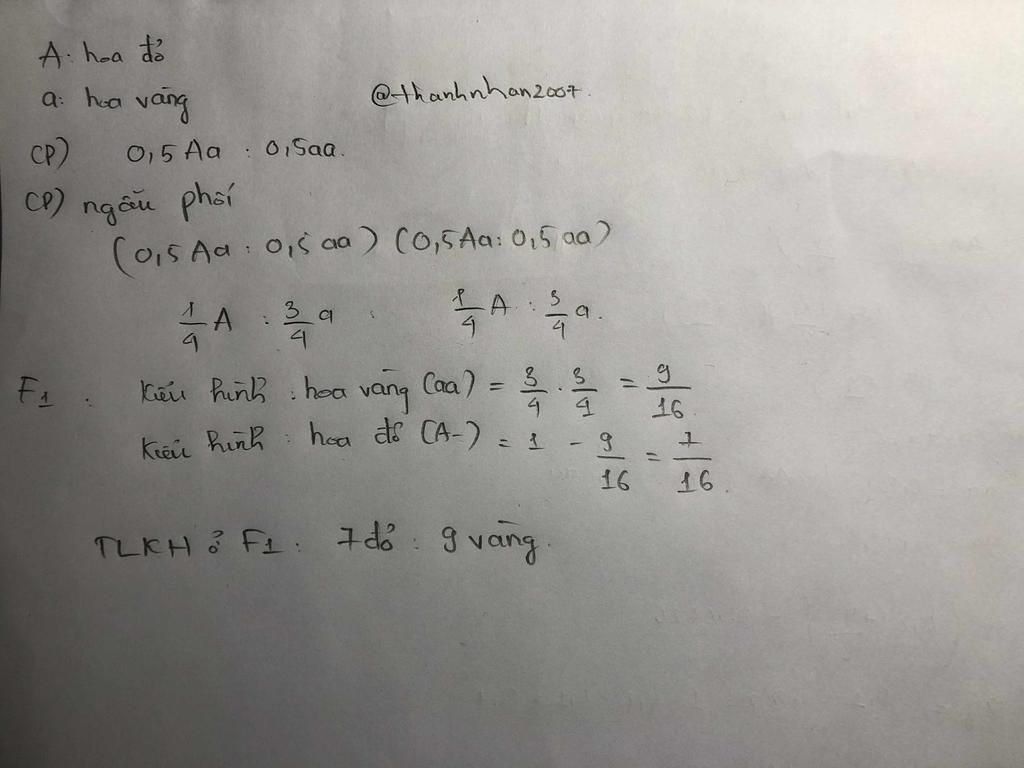 A: hoa đỏ
a: hoa vàng @thanhnhan2007.
(P) 0,5Aa : 0,5aa.
(P) ngẫu phối
(0,5Aa : 0,5aa) (0,5Aa : 0,5aa)
1/4 A : 3/4 a 1/4 A : 3/4 a.
F1 : Kiểu hình : hoa vàng (aa) = 3/4 . 3/4 = 9/16
Kiểu hình : hoa đỏ (A-) = 1 - 9/16 = 7/16.
TLKH ở F1 : 7 đỏ : 9 vàng.